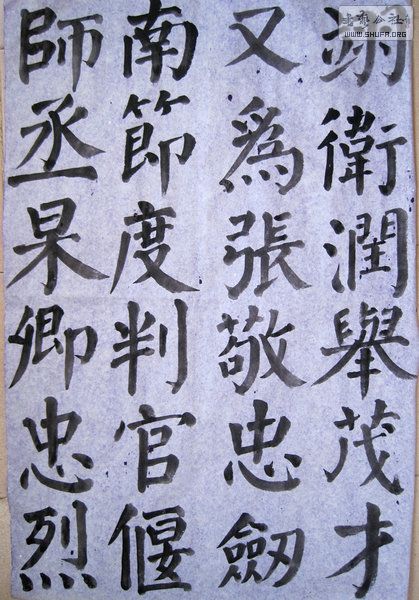 翊衛潤舉茂才
又爲張敬忠劔
南節度判官偃
師丞杲卿忠烈
WWW.SHUFA.ORG